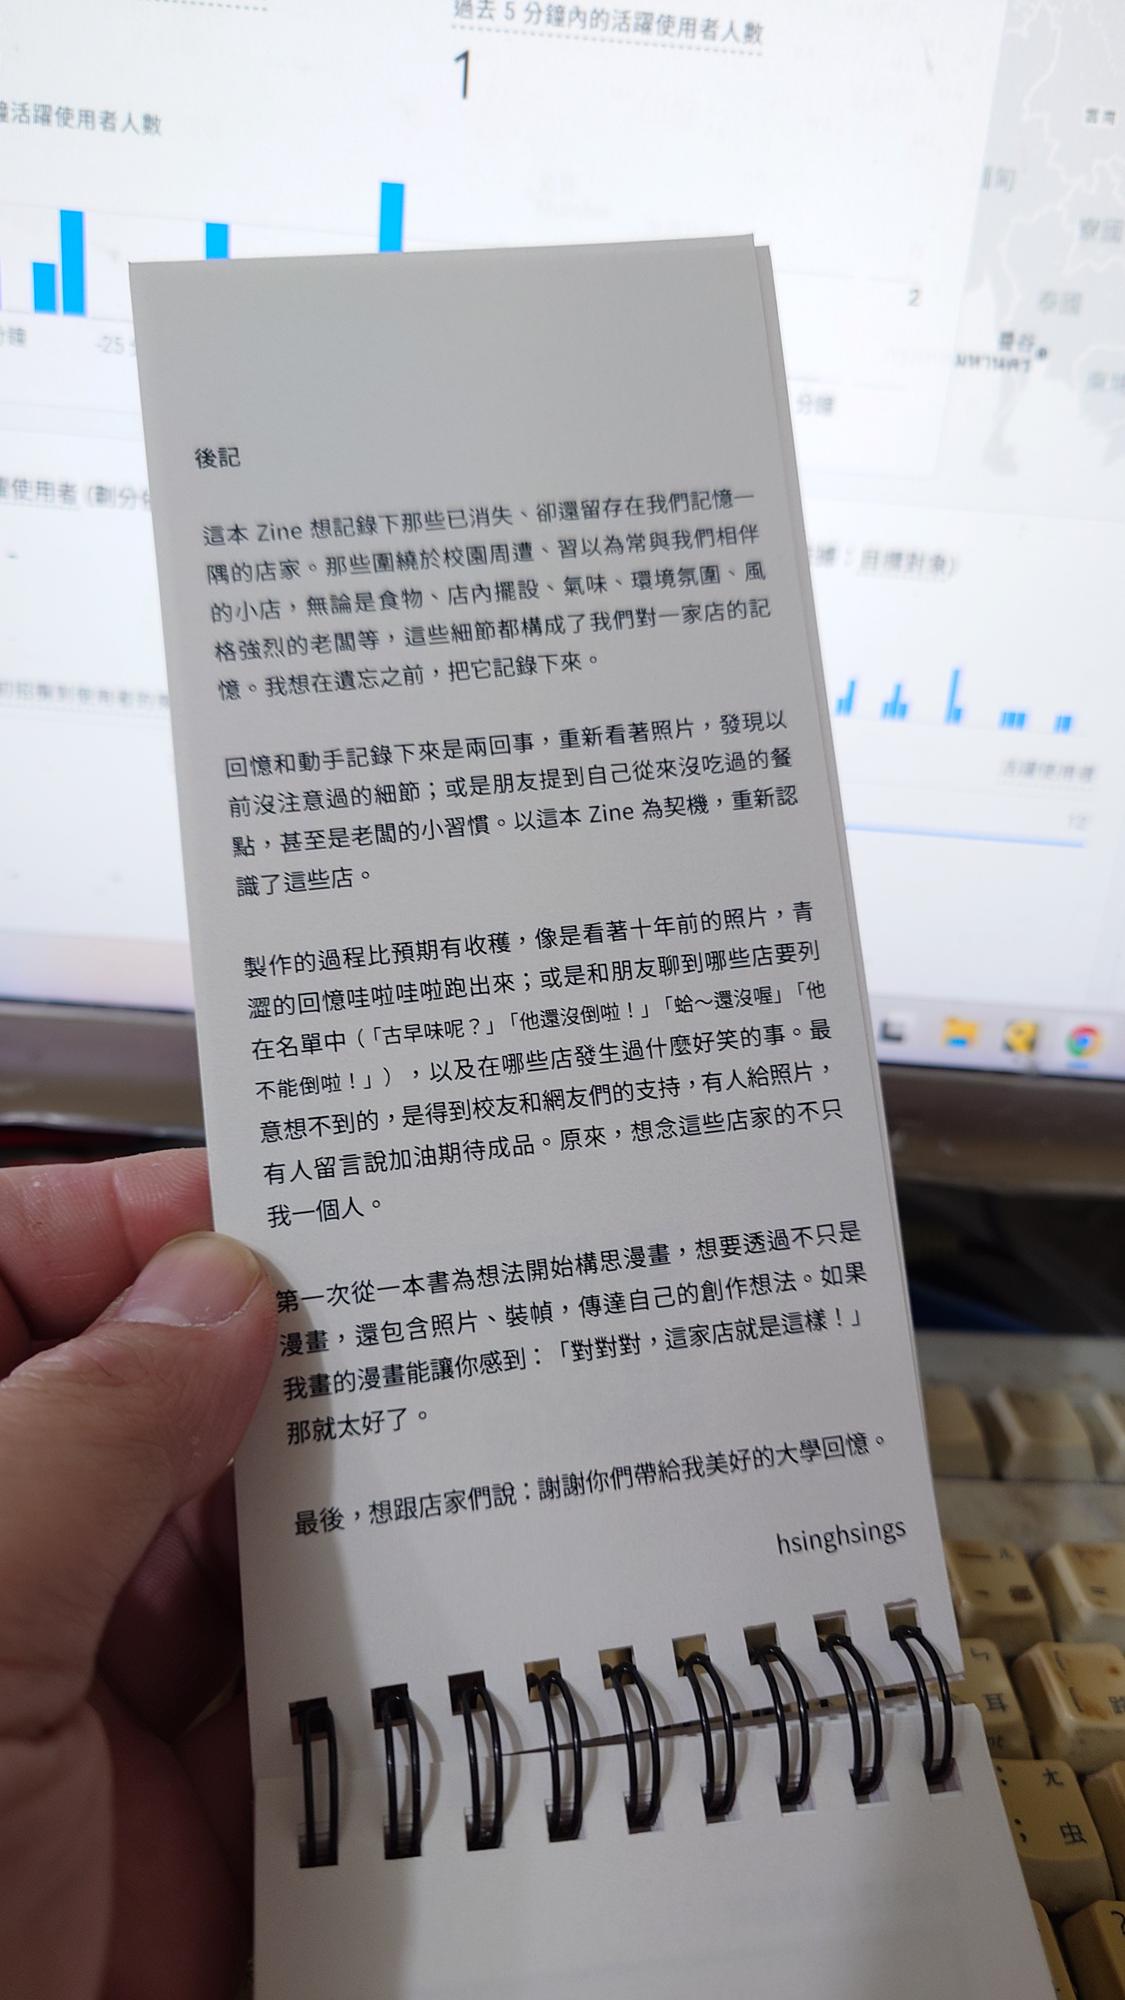 過去 5 分鐘內的活躍使用者人數
1
活躍使用者人數
2
寮國
泰國
曼谷
分鐘
-25
使用者 (劃分
活躍使用者
12
後記
這本 Zine 想記錄下那些已消失、卻還留存在我們記憶一
隅的店家。那些圍繞於校園周遭、習以為常與我們相伴
的小店，無論是食物、店內擺設、氣味、環境氛圍、風
格強烈的老闆等，這些細節都構成了我們對一家店的記
憶。我想在遺忘之前，把它記錄下來。
回憶和動手記錄下來是兩回事，重新看著照片，發現以
前沒注意過的細節；或是朋友提到自己從來沒吃過的餐
點，甚至是老闆的小習慣。以這本 Zine 為契機，重新認
識了這些店。
製作的過程比預期有收穫，像是看著十年前的照片，青
澀的回憶哇啦哇啦跑出來；或是和朋友聊到哪些店要列
在名單中（「古早味呢？」「他還沒倒啦！」「蛤～還沒喔」「他
不能倒啦！」），以及在哪些店發生過什麼好笑的事。最
意想不到的，是得到校友和網友們的支持，有人給照片，
有人留言說加油期待成品。原來，想念這些店家的不只
我一個人。
第一次從一本書為想法開始構思漫畫，想要透過不只是
漫畫，還包含照片、裝幀，傳達自己的創作想法。如果
我畫的漫畫能讓你感到：「對對對，這家店就是這樣！」
那就太好了。
最後，想跟店家們說：謝謝你們帶給我美好的大學回憶。
hsinghsings
ㄤ
；
虫
耳